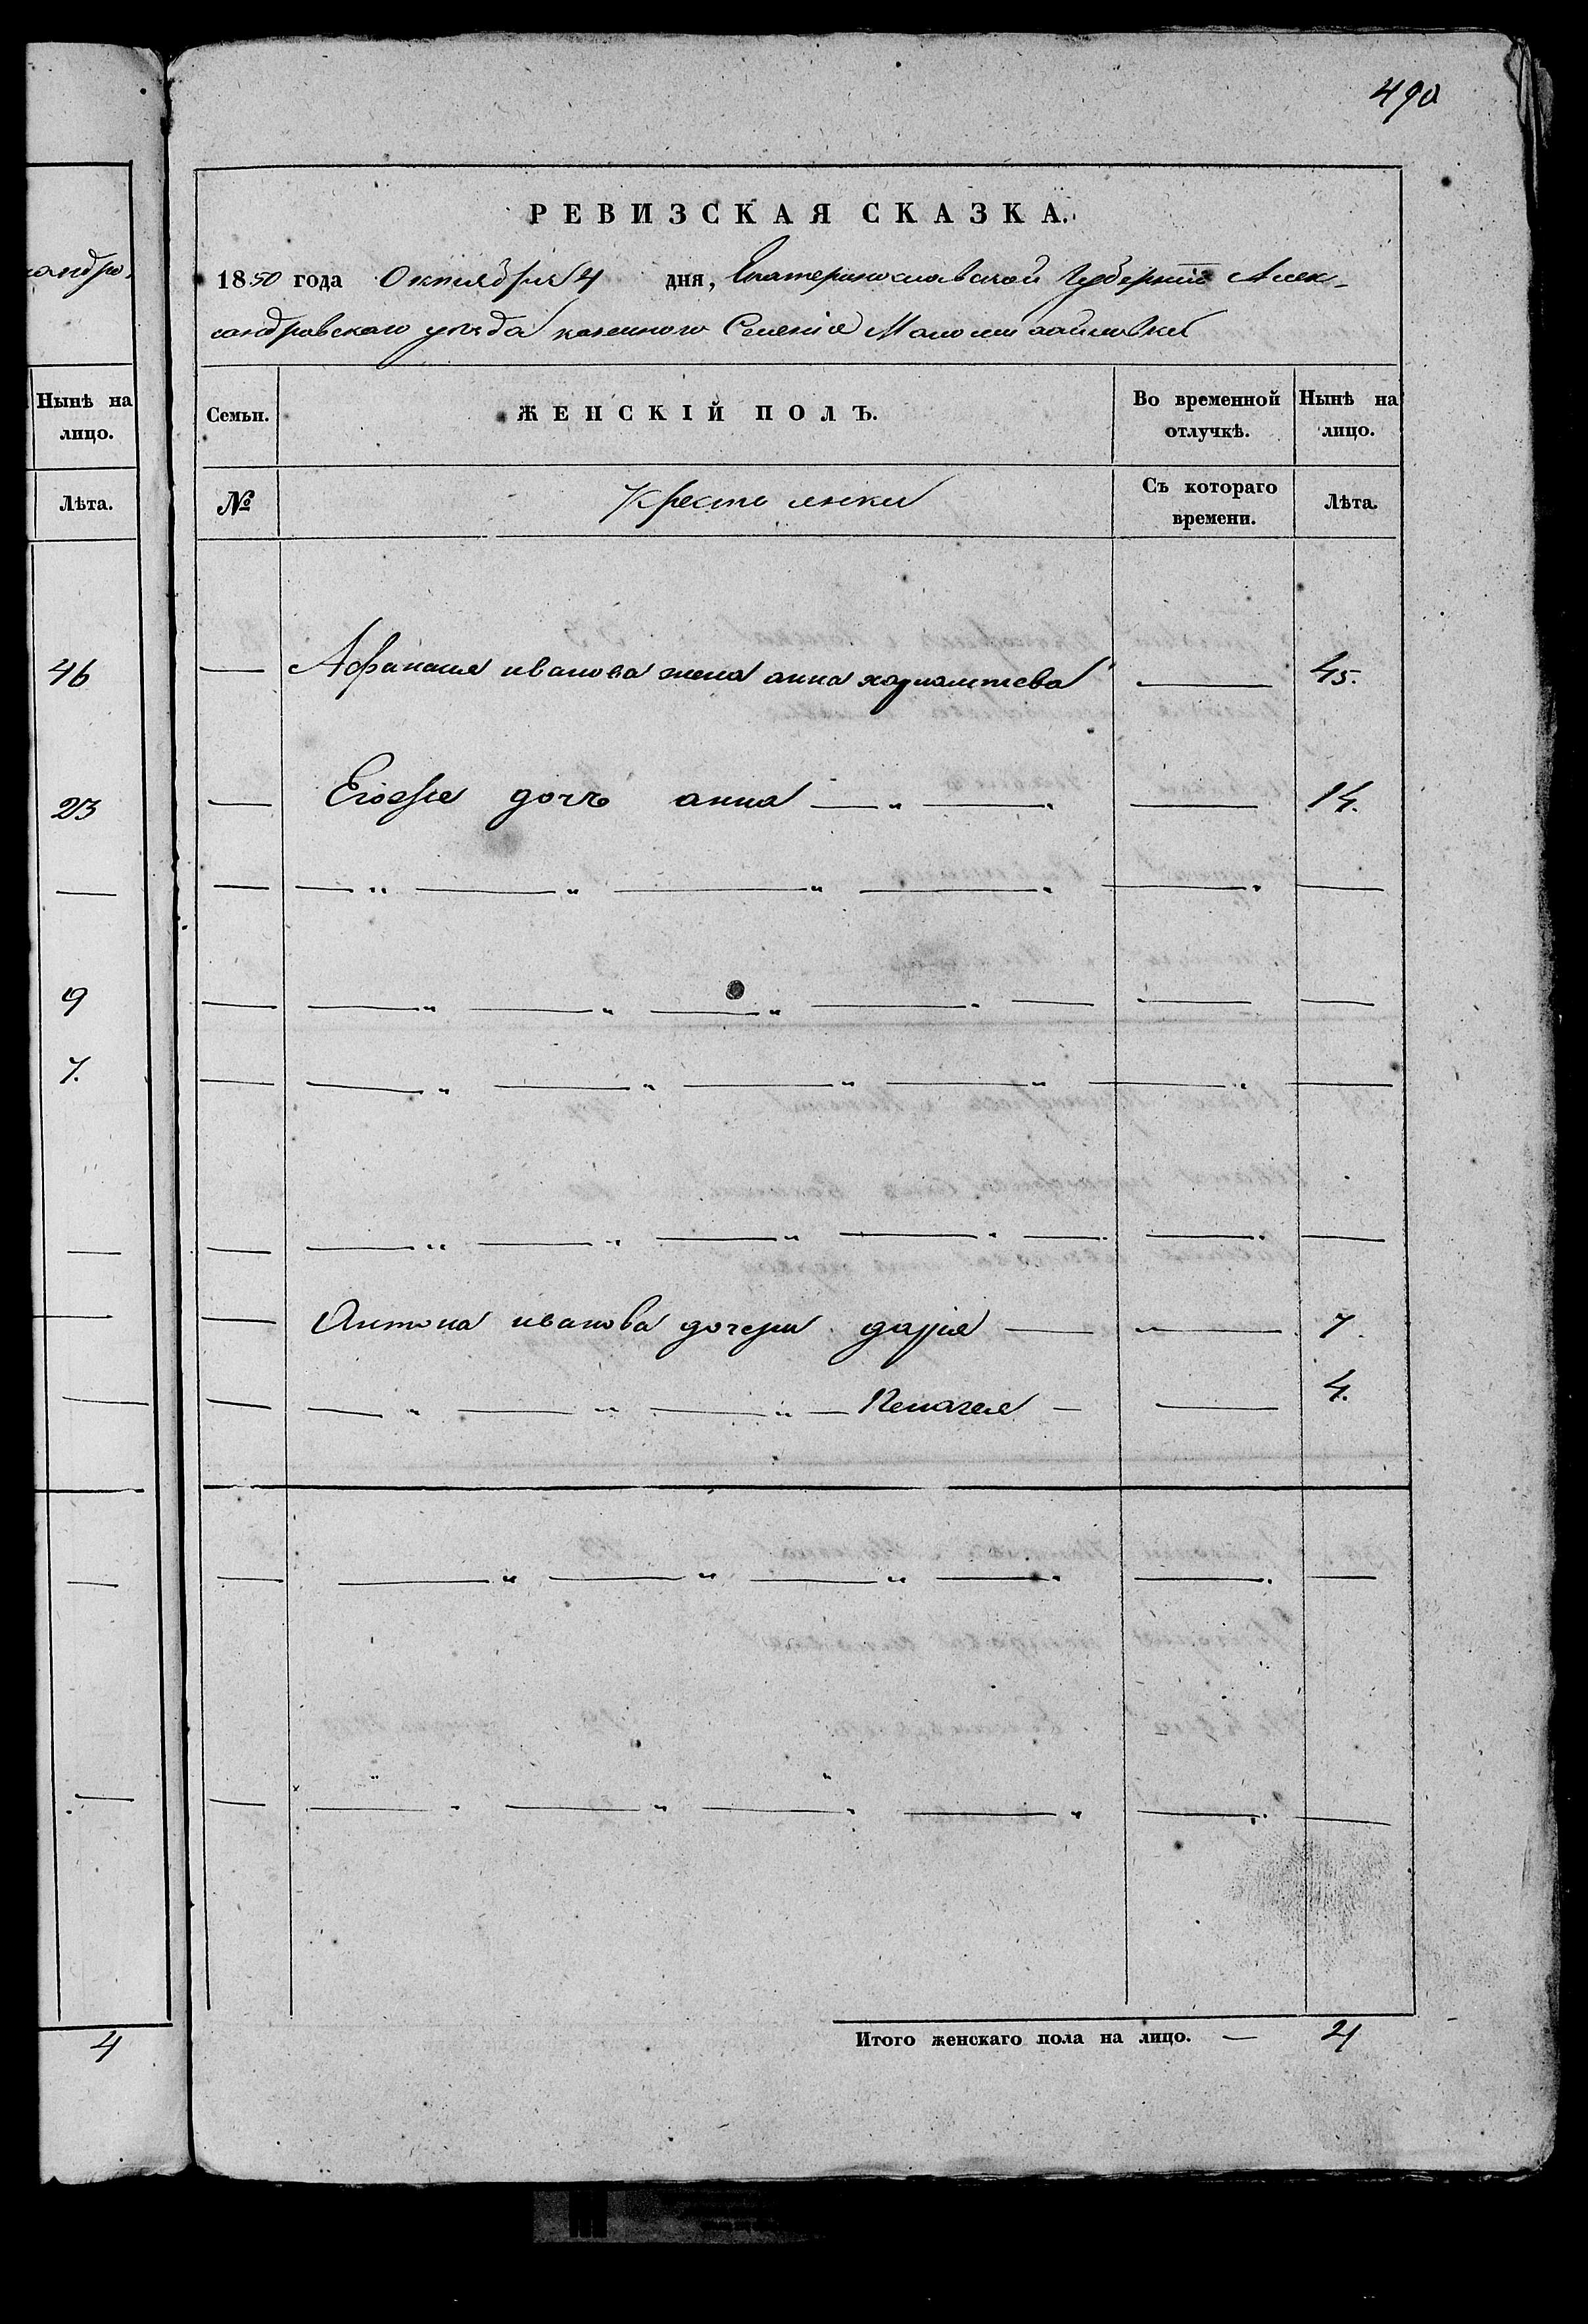 490
РЕВИЗСКАЯ СКАЗКА.
1850 года Октября 4 дня, Екатеринославской Губернiи Алек-
сандровскаго уѣзда казенного Селенiя Маломихайловки
Семьи.
ЖЕНСКIЙ ПОЛЪ.
Во временной отлучкѣ.
Нынѣ на лицо.
№
Крестьянки
Съ котораго времени.
Лѣта.
Афанасия иванова жена анна харлампiева 45.
Егоже дочъ анна 14.
Антона иванова дочери дарiя 7.
Пелагея 4.
Итого женскаго пола на лицо. — 4
андро.
Нынѣ на
лицо.
Лѣта.
46
23
9
7.
4